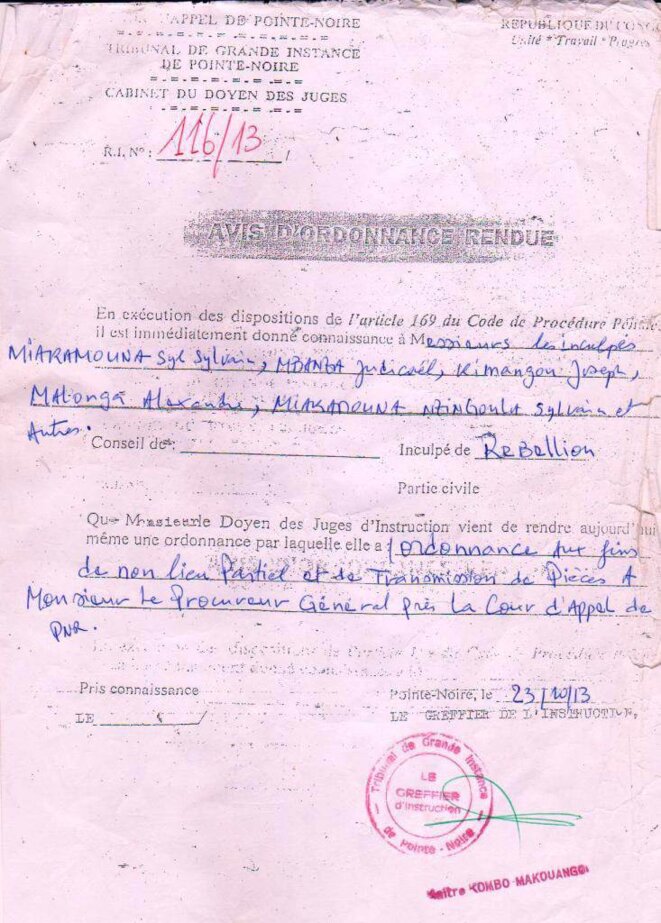 D'APPEL DE POINTE-NOIRE
REPUBLIQUE DU CONGO
Unité * Travail * Progrès
TRIBUNAL DE GRANDE INSTANCE
DE POINTE-NOIRE
CABINET DU DOYEN DES JUGES
R.I. N° : 116/13 /
AVIS D'ORDONNANCE RENDUE
En exécution des dispositions de l'article 169 du Code de Procédure Pénale
il est immédiatement donné connaissance à Messieurs les inculpés
MIAKAMOUNA Syl Sylvain, MBANZA Judicaël, Kimangou Joseph,
Malonga Alexandre, MIAKAMOUNA NZINGOULA Sylvain et
Autres.
Conseil de : Inculpé de Rebellion
Partie civile
Que Monsieur le Doyen des Juges d'Instruction vient de rendre aujourd'hui
même une ordonnance par laquelle elle a / ordonnance aux fins
de non lieu Partiel et de Transmission de Pièces A
Monsieur Le Procureur Général près La Cour d'Appel de
PNR.
Pris connaissance
Pointe-Noire, le 23/10/13
LE / /
LE GREFFIER DE L'INSTRUCTION,
Tribunal de Grande Instance
LE
GREFFIER
d'Instruction
de Pointe-Noire
Maître KOMBO MAKOUANGOU